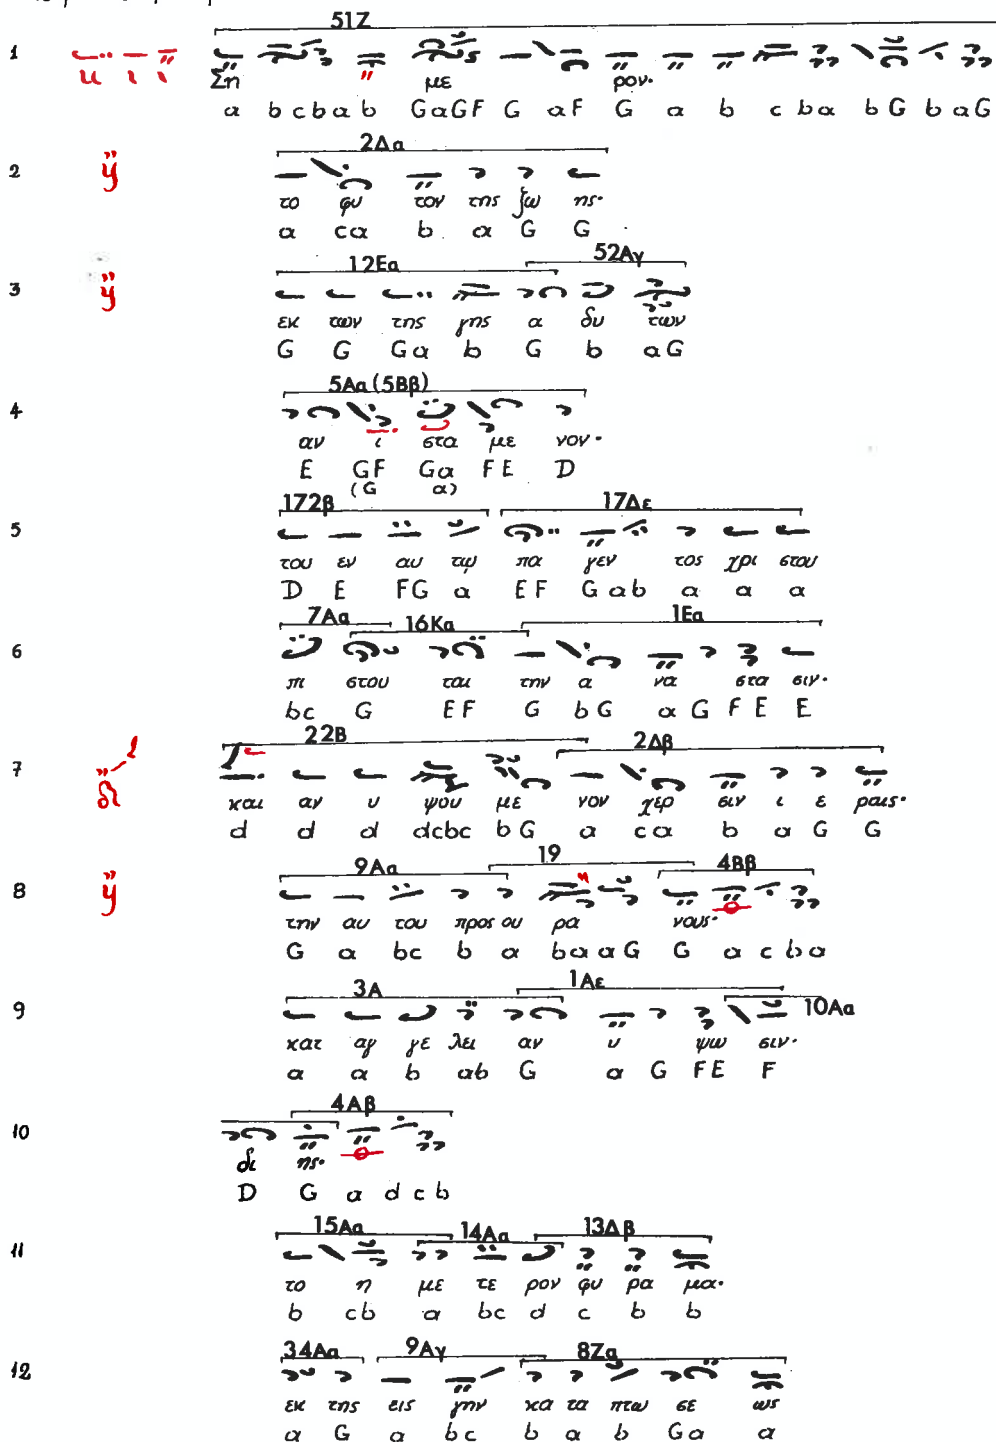 51Z
1
Ση με ρον·
a b c b a b G a G F G a F G a b c b a b G b a G
2Δα
2 ÿ
το φυ τον της ζω ης·
a c a b a G G
12Εα 52Αγ
3 ÿ
εκ των της γης α δυ των
G G G a b G b a G
5Αα (5Ββ)
4
αν ι στα με νον·
E G F G a F E D
(G a)
172β 17Δε
5
του εν αυ τῳ πα γεν τος χρι στου
D E F G a E F G a b a a a
7Αα 16Κα 1Εα
6
πι στου ται την α να στα σιν·
b c G E F G b G a G F E E
22Β 2Δβ
7
και αν υ ψου με νον χερ σιν ι ε ραις·
d d d d c b c b G a c a b a G G
9Αα 19 4Ββ
8 ÿ
την αυ του προς ου ρα νους·
G a b c b a b a a G G a c b a
3Α 1Αε 10Αα
9
κατ αγ γε λει αν υ ψω σιν·
a a b a b G a G F E F
4Αβ
10
δι ης·
D G a d c b
15Αα 14Αα 13Δβ
11
το η με τε ρον φυ ρα μα·
b c b a b c d c b b
34Αα 9Αγ 8Ζα
12
εκ της εις γην κα τα πτω σε ως
a G a b c b a b G a a